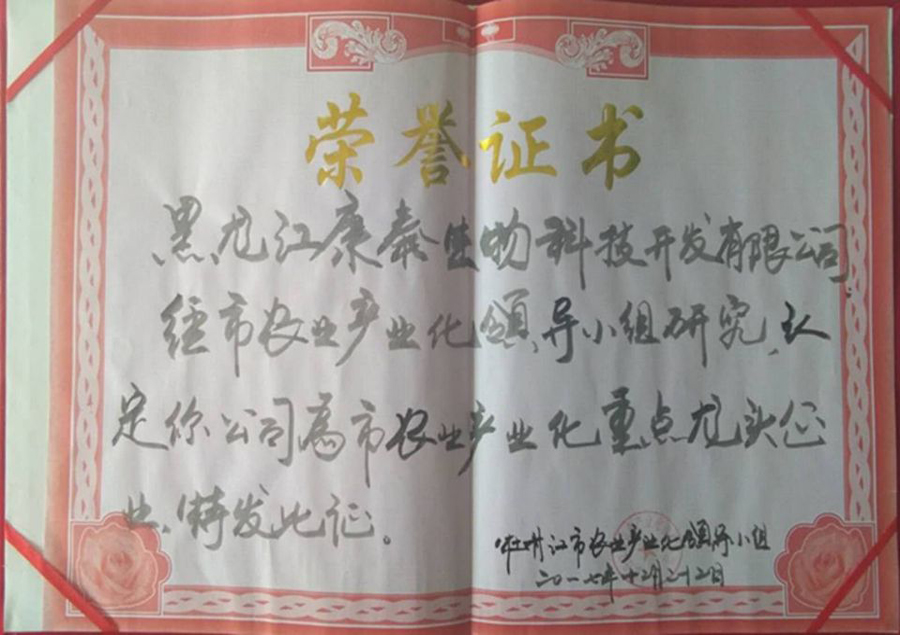 荣誉证书
黑龙江康泰生物科技开发有限公司
经市农业产业化领导小组研究,认
定你公司为市农业产业化重点龙头企
业,特发此证。
牡丹江市农业产业化领导小组
二〇一七年十二月二十二日